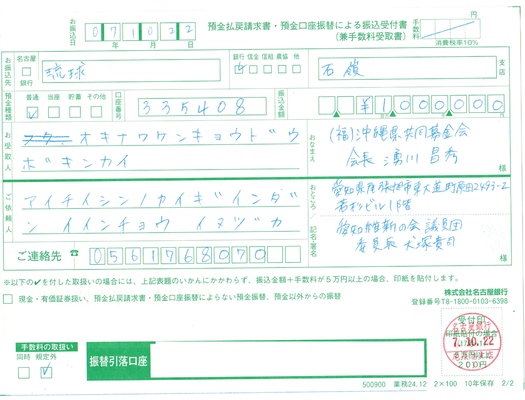 預金払戻請求書・預金口座振替による振込受付書
(兼手数料受取書)
お振込日
071022
年 月 日
手数料
円
消費税率10%
お振込先
名古屋
銀行
琉球
銀行 信金 信組 農協 他
石嶺
支店
預金種類
普通 当座 貯蓄 その他
口座番号
335408
振込金額
¥1000000
お受取人
オキナワケンキョウドウ
ボキンカイ
おなまえ
(福)沖縄県共同募金会
会長 湧川 昌秀
様
ご依頼人
アイチイシンノカイギインダ
ン イインチョウ イヌヅカ
おところ/記名・署名
愛知県尾張旭市東大道町原田2493-2
若杉ビル1階
愛知維新の会 議員団
委員長 犬塚貴司
様
ご連絡先 ☎
0561768070
※以下の✔を付した取扱いの場合には、上記表題のいかんにかかわらず、振込金額+手数料が5万円以上の場合、印紙を貼付します。
現金・有価証券扱い、預金払戻請求書・預金口座振替によらない預金振替、預金以外からの振替
株式会社名古屋銀行
登録番号T8-1800-0103-6398
手数料の取扱い
同時 規定外
振替引落口座
受付印
名古屋銀行
7.10.22
200円
500900 業務24.12 2×100 10年保存 2/2